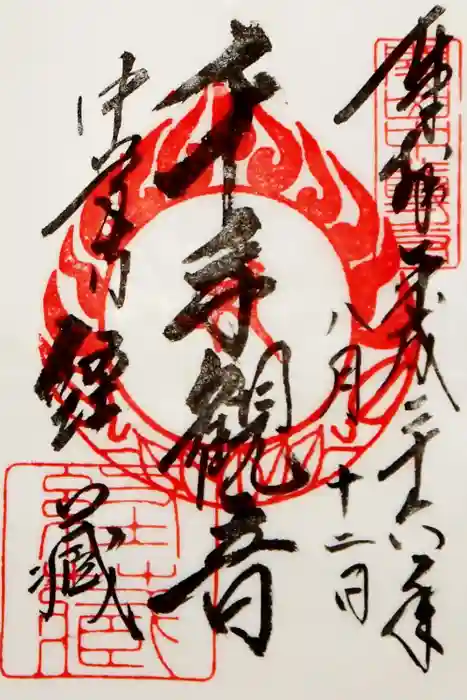 奉拝 平成二十六年
八月十二日
千手観音
中尊寺
経蔵